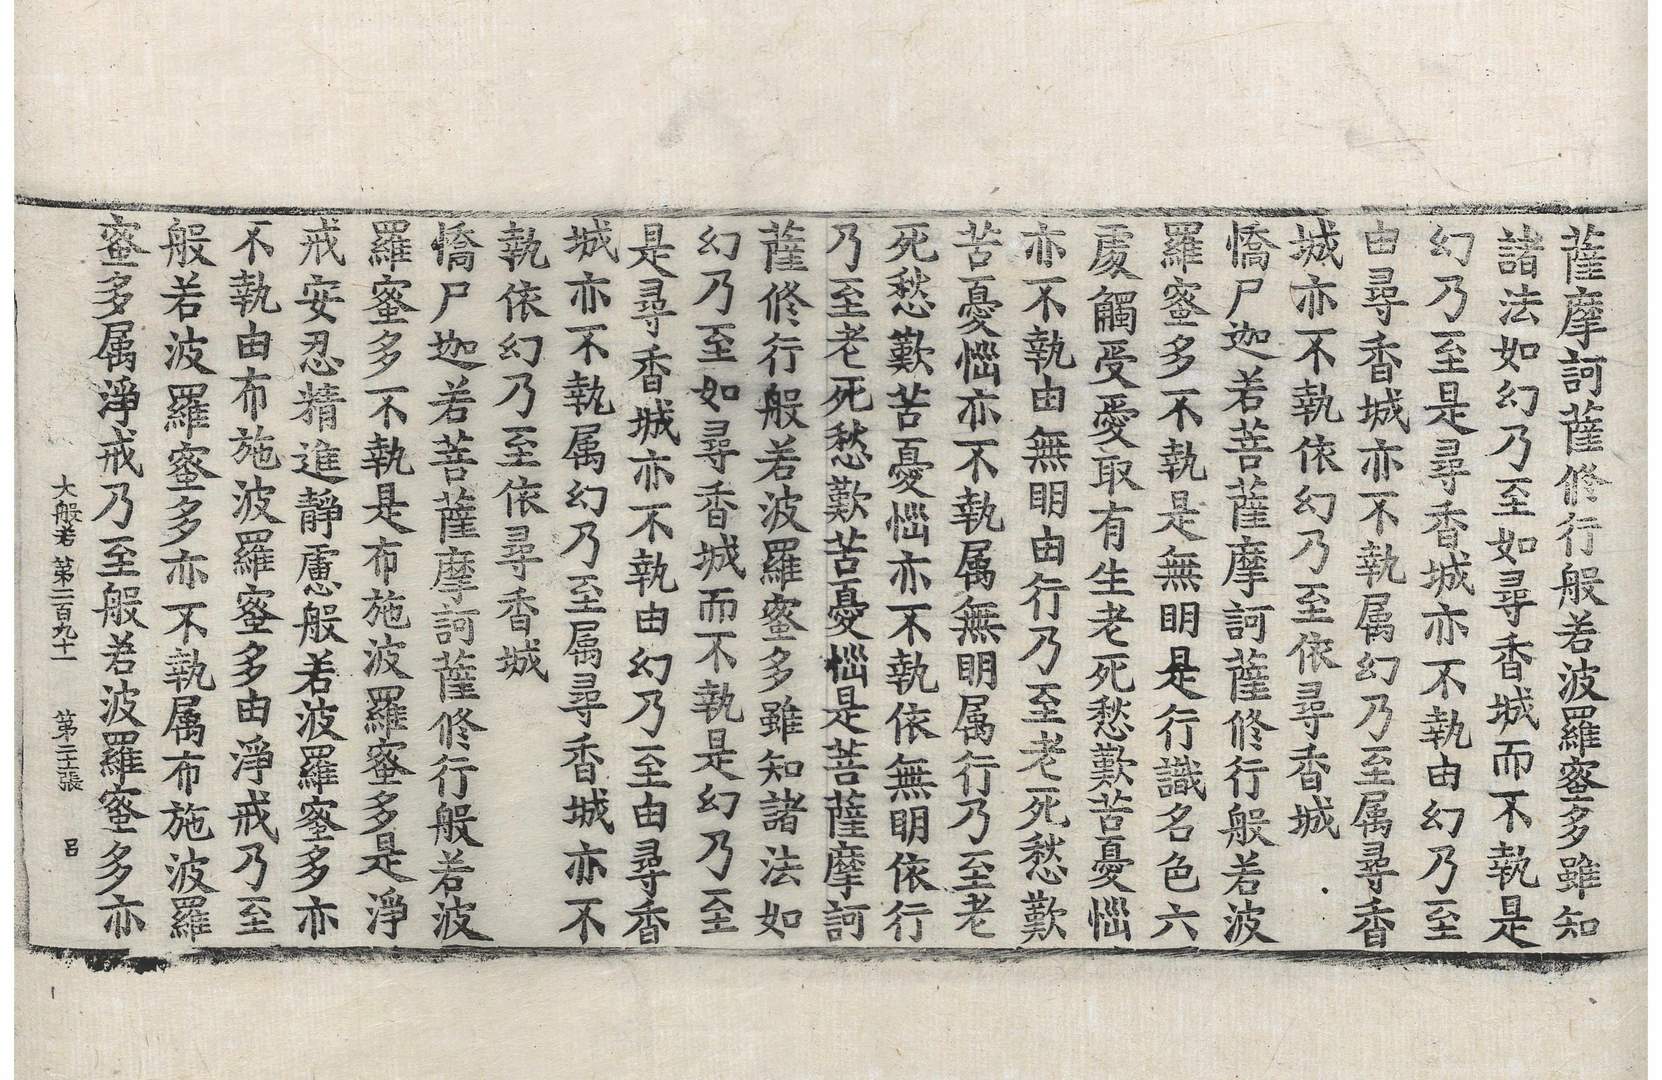 薩摩訶薩修行般若波羅蜜多雖知
諸法如幻乃至如尋香城而不執是
幻乃至是尋香城亦不執由幻乃至
由尋香城亦不執属幻乃至属尋香
城亦不執依幻乃至依尋香城
憍尸迦若菩薩摩訶薩修行般若波
羅蜜多不執是無明是行識名色六
處觸受愛取有生老死愁歎苦憂惱
亦不執由無明由行乃至老死愁歎
苦憂惱亦不執属無明属行乃至老
死愁歎苦憂惱亦不執依無明依行
乃至老死愁歎苦憂惱是菩薩摩訶
薩修行般若波羅蜜多雖知諸法如
幻乃至如尋香城而不執是幻乃至
是尋香城亦不執由幻乃至由尋香
城亦不執属幻乃至属尋香城亦不
執依幻乃至依尋香城
憍尸迦若菩薩摩訶薩修行般若波
羅蜜多不執是布施波羅蜜多是淨
戒安忍精進靜慮般若波羅蜜多亦
不執由布施波羅蜜多由淨戒乃至
般若波羅蜜多亦不執属布施波羅
蜜多属淨戒乃至般若波羅蜜多亦
大般若 第二百九十一 第二十張 呂